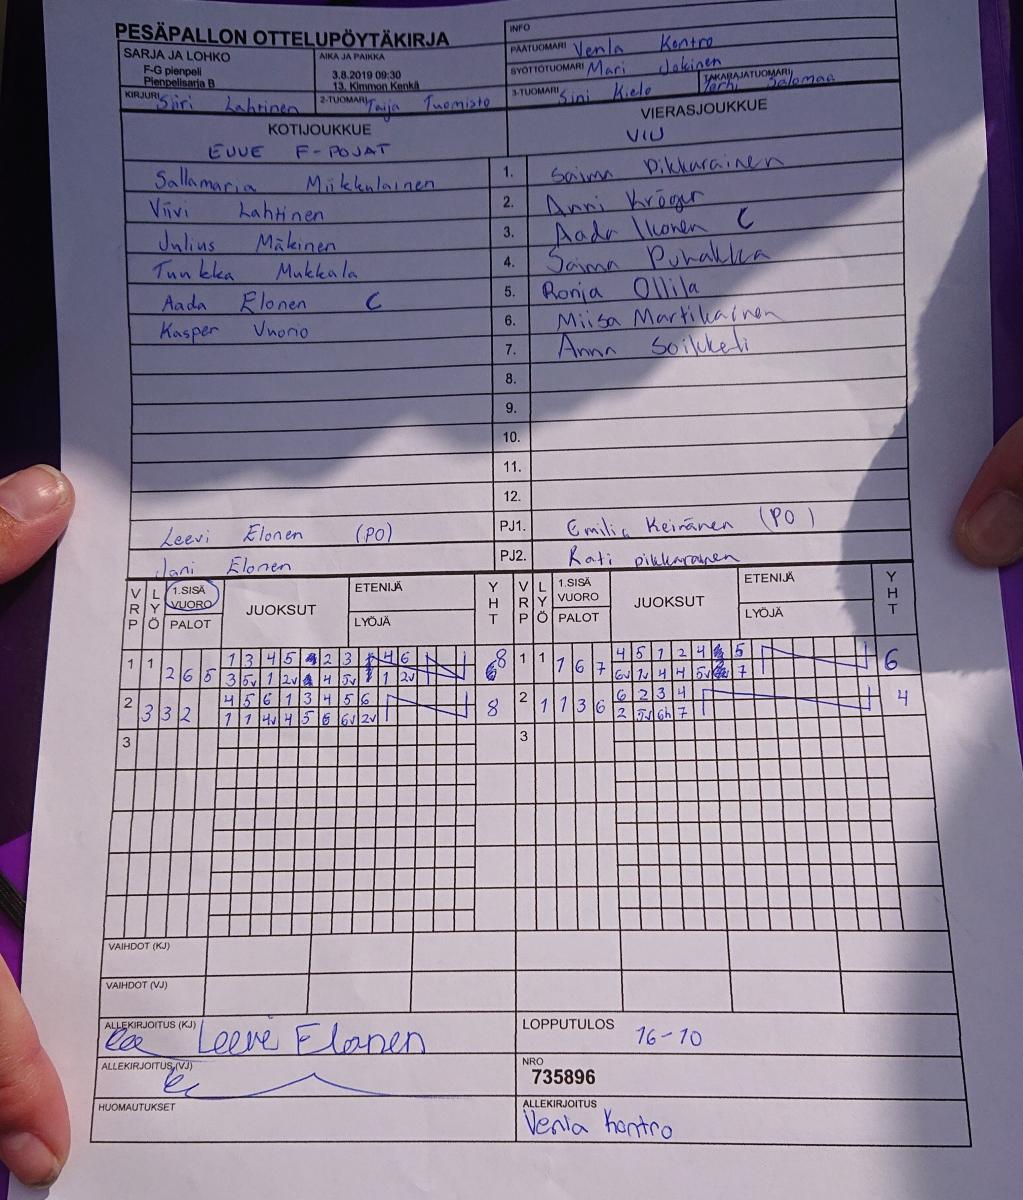 PESÄPALLON OTTELUPÖYTÄKIRJA
INFO
SARJA JA LOHKO
F-G pienpeli
Pienpelisarja B
AIKA JA PAIKKA
3.8.2019 09:30
13. Kimmon Kenkä
PÄÄTUOMARI Venla Kontro
SYÖTTÖTUOMARI Mari Jokinen
KIRJURI Siiri Lahtinen
2-TUOMARI Taija Tuomisto
3-TUOMARI Sini Kielo
TAKARAJATUOMARI Terhi Salomaa
KOTIJOUKKUE
EUUE F-POJAT
VIERASJOUKKUE
VIU
Sallamaria Miikkulainen 1. Saima Pikkarainen
Viivi Lahtinen 2. Anni Kröger
Julius Mäkinen 3. Aada Ikonen C
Tuukka Mukkala 4. Saima Puhakka
Aada Elonen C 5. Ronja Ollila
Kasper Vuorio 6. Miisa Martikainen
7. Anna Soikkeli
8.
9.
10.
11.
12.
Leevi Elonen (PO) PJ1. Emilia Keiränen (PO)
Jani Elonen PJ2. Kati Pikkarainen
VRP LYÖ 1.SISÄ VUORO PALOT JUOKSUT ETENIJÄ LYÖJÄ YHT VRP LYÖ 1.SISÄ VUORO PALOT JUOKSUT ETENIJÄ LYÖJÄ YHT
1 1 2 6 5 1 3 4 5 2 3 4 6 8 1 1 1 6 7 4 5 1 2 4 5 6
3 5v 1 2v 4 5v 1 2v 6v 1v 4 4 5v 7
2 3 3 2 4 5 6 1 3 4 5 6 8 2 1 1 3 6 6 2 3 4 4
1 1 4v 4 5 6 6v 2v 2 5v 6h 7
3 3
VAIHDOT (KJ)
VAIHDOT (VJ)
ALLEKIRJOITUS (KJ) Leevi Elonen
LOPPUTULOS 16-10
ALLEKIRJOITUS (VJ)
NRO
735896
HUOMAUTUKSET
ALLEKIRJOITUS
Venla Kontro